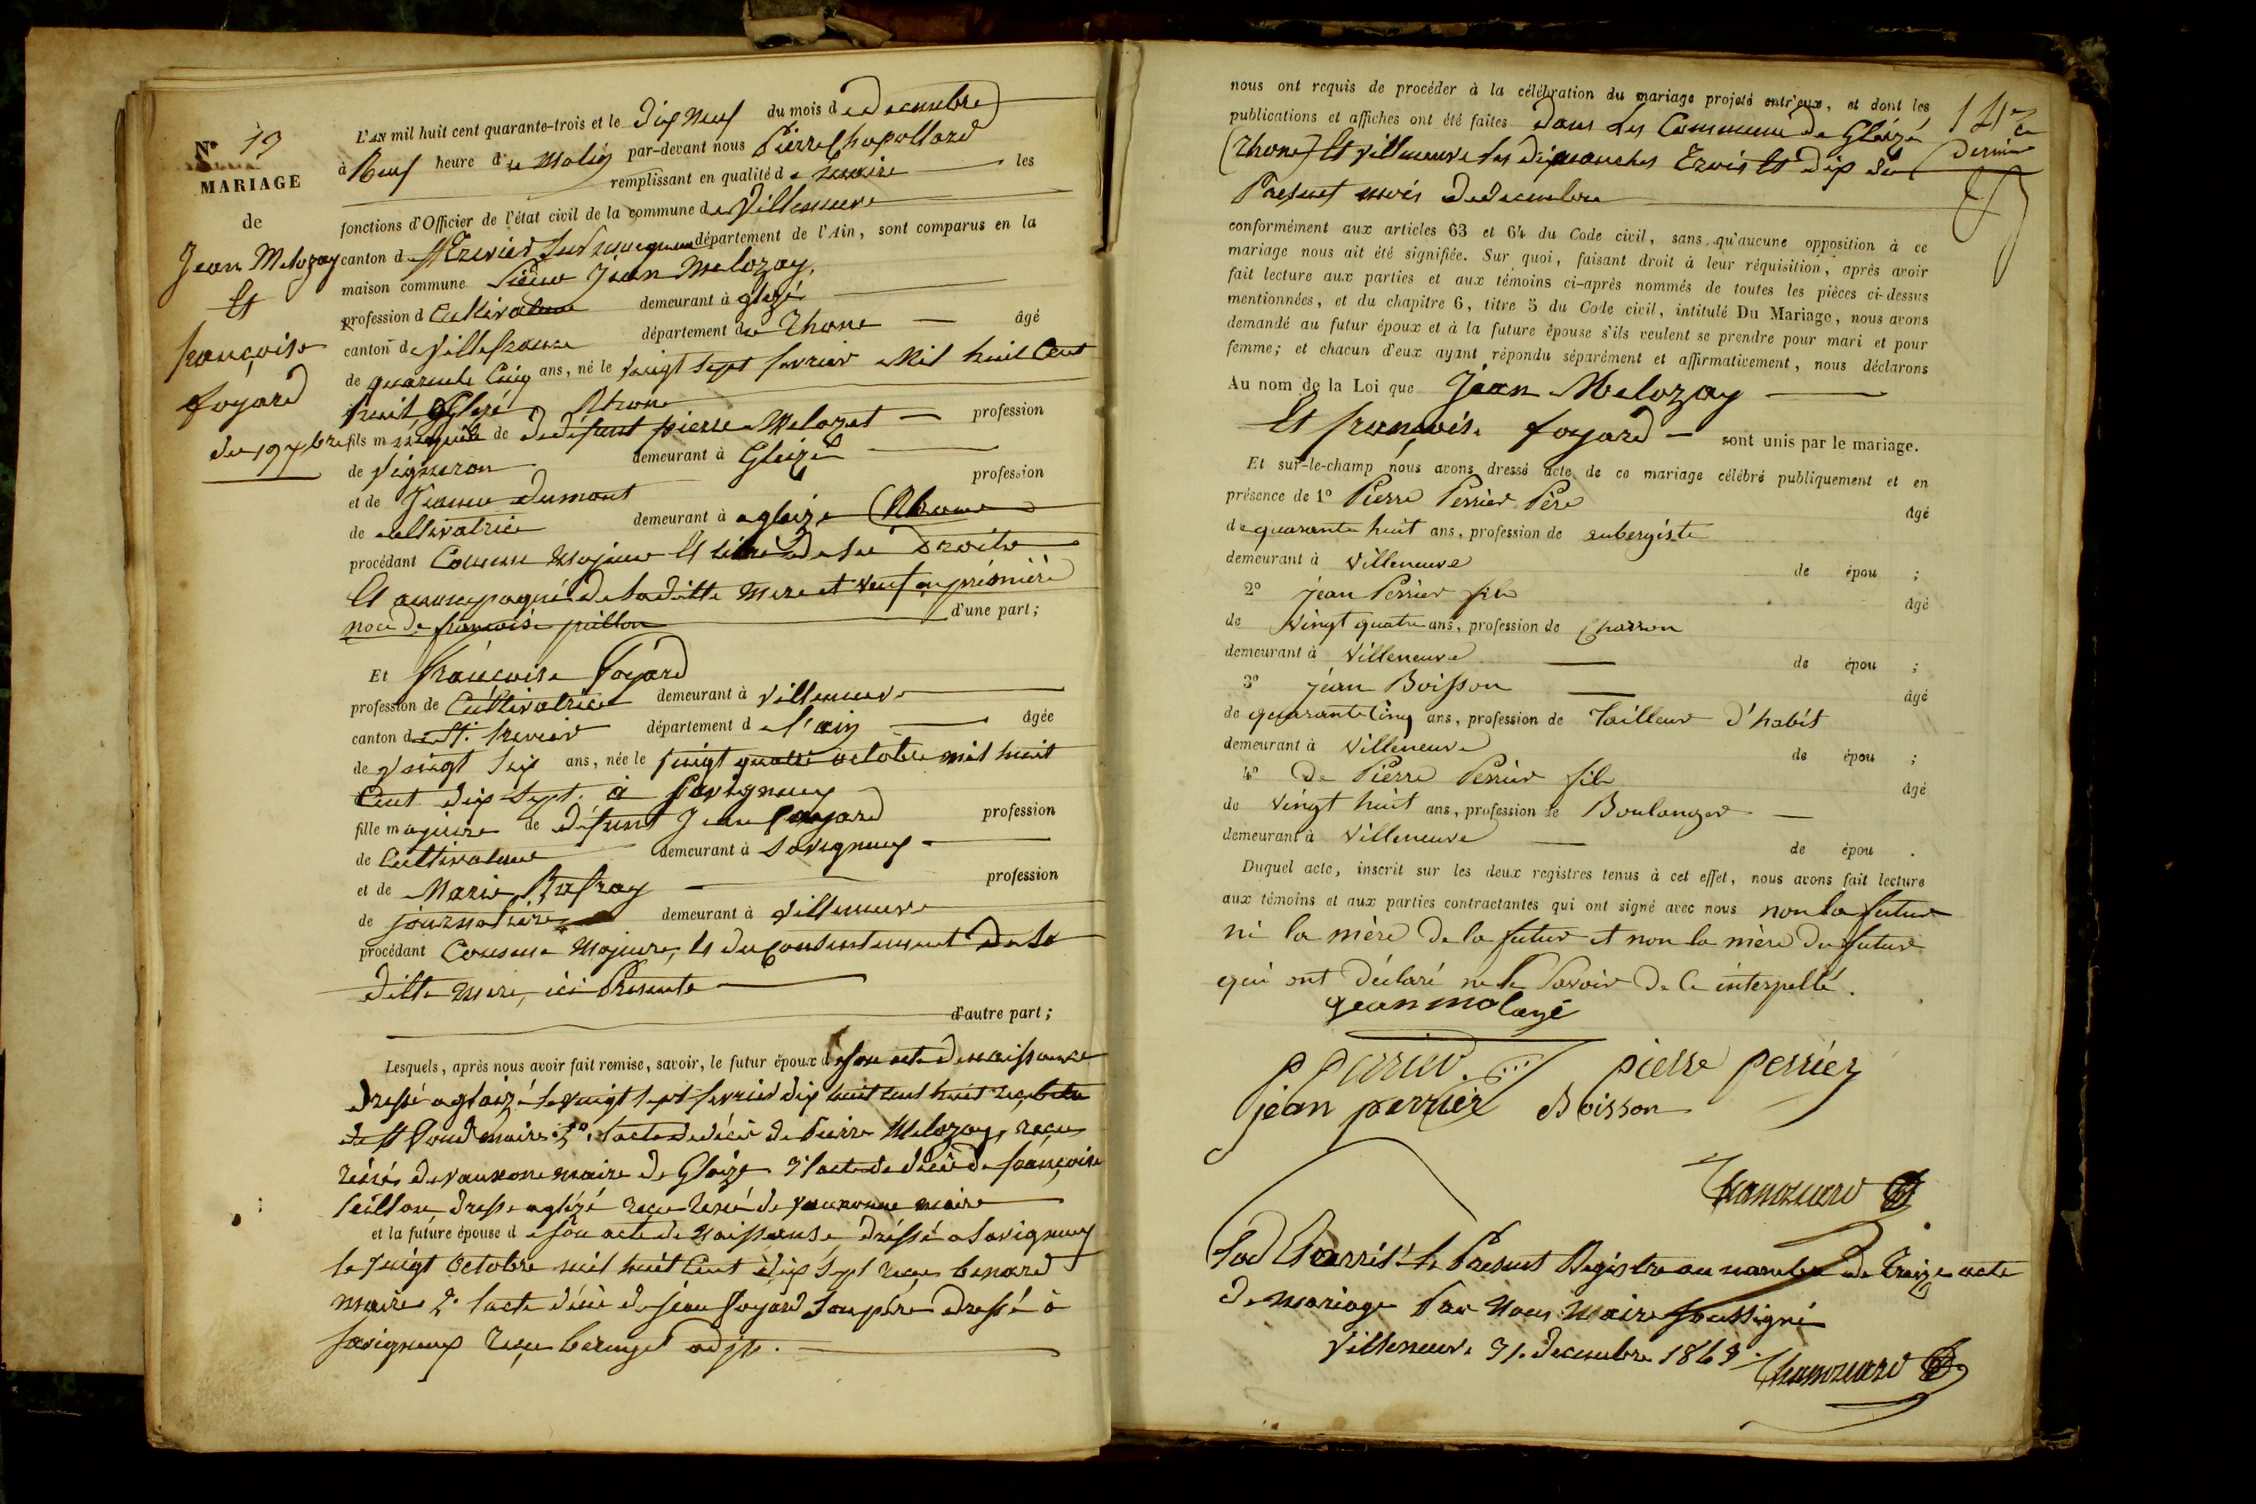 N° 13
MARIAGE
de
Jean Melozay
Et
françoise
foyard
du 19 Xbre
L'AN mil huit cent quarante-trois et le Dix neuf du mois de decembre
à Neuf heure du Matin par-devant nous Pierre Chapollard
remplissant en qualité de maire les
fonctions d'Officier de l'état civil de la commune de Villeneuve
canton de St Trivier sur département de l'Ain, sont comparus en la
maison commune Sieur Jean Melozay,
profession d Cultivateur demeurant à glezé
canton de Villefranche département du Rhone âgé
de quarante Cinq ans, né le vingt Sept fevrier Mil huit Cent
huit a Glezé Rhone
fils m de De défunt pierre Melozet profession
de Vigneron demeurant à Gleizé
et de Jeanne Dumont profession
de cultivatrice demeurant à a gleizé (Rhone
procédant Comme Majeur et libre de ses Droits
Et accompagné de Saditte Mere et veuf en première
noce de françoise pillon d'une part;
Et françoise Foyard
profession de Cultivatrice demeurant à Villeneuve
canton de St. Trivier département d e l'ain âgée
de vingt Six ans, née le vingt quatre octobre mil huit
Cent dix Sept. à Savigneux
fille majeure de défunt Jean foyard profession
de Cultivateur demeurant à Savigneux
et de Marie Dufray profession
de journalière demeurant à Villeneuve
procédant Comme Majeure, Et du Consentement de Sa
ditte Mere, ici Presente
d'autre part;
Lesquels, après nous avoir fait remise, savoir, le futur époux d e Son acte de naissance
dressé a gleizé le vingt sept fevrier dix huit cent huit
maire. 2°. l'acte de décès de Pierre Melozay, reçu
de vauxonne maire de Gleize 3° l'acte de décès de françoise
pillon dresse a glézé reçu de vauxonne maire
et la future épouse d e Son acte de Naissance dréssé a Savigneux
le Vingt Octobre mil huit Cent dix Sept reçu benard
maire 2° l'acte décès de Jean Foyard Son père Dressé à
Savigneux reçu adjt.
nous ont requis de procéder à la célébration du mariage projeté entr'eux, et dont les
publications et affiches ont été faites dans les Commune de Gleizé
(Rhone) Et Villeneuve les dimanches Trois Et dix du
Present mois de decembre
14
Dernier
conformément aux articles 63 et 64 du Code civil, sans qu'aucune opposition à ce
mariage nous ait été signifiée. Sur quoi, faisant droit à leur réquisition, après avoir
fait lecture aux parties et aux témoins ci-après nommés de toutes les pièces ci-dessus
mentionnées, et du chapitre 6, titre 5 du Code civil, intitulé Du Mariage, nous avons
demandé au futur époux et à la future épouse s'ils veulent se prendre pour mari et pour
femme; et chacun d'eux ayant répondu séparément et affirmativement, nous déclarons
Au nom de la Loi que Jean Melozay
Et françoise foyard sont unis par le mariage.
Et sur-le-champ nous avons dressé acte de ce mariage célébré publiquement et en
présence de 1° Pierre Perrier Père âgé
de quarante huit ans, profession de aubergiste
demeurant à Villeneuve de épou ;
2° jean Perrier fils âgé
de Vingt quatre ans, profession de Charron
demeurant à Villeneuve de épou ;
3° jean Boisson âgé
de quarante cinq ans, profession de Tailleur D'habit
demeurant à Villeneuve de épou ;
4° de Pierre Perrier fils âgé
de Vingt huit ans, profession de Boulanger
demeurant à Villeneuve de épou .
Duquel acte, inscrit sur les deux registres tenus à cet effet, nous avons fait lecture
aux témoins et aux parties contractantes qui ont signé avec nous non la futur
ni la mère de la futur et non la mère du futur
qui ont déclaré ne le Savoir de ce interpellé.
jean molozé
P Perrier pierre perrier
jean perrier Boisson
Clos Et arrêté le Present Registre au nombre de Treize acte
de mariage Par Nous Maire Soussigné
Villeneuve 31. decembre 1843